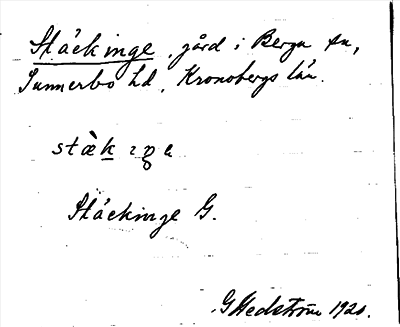 Stäckinge, gård i Berga sn,
Sunnerbo hd, Kronobergs län.
Stäckinge G.
G Hedström 1920.